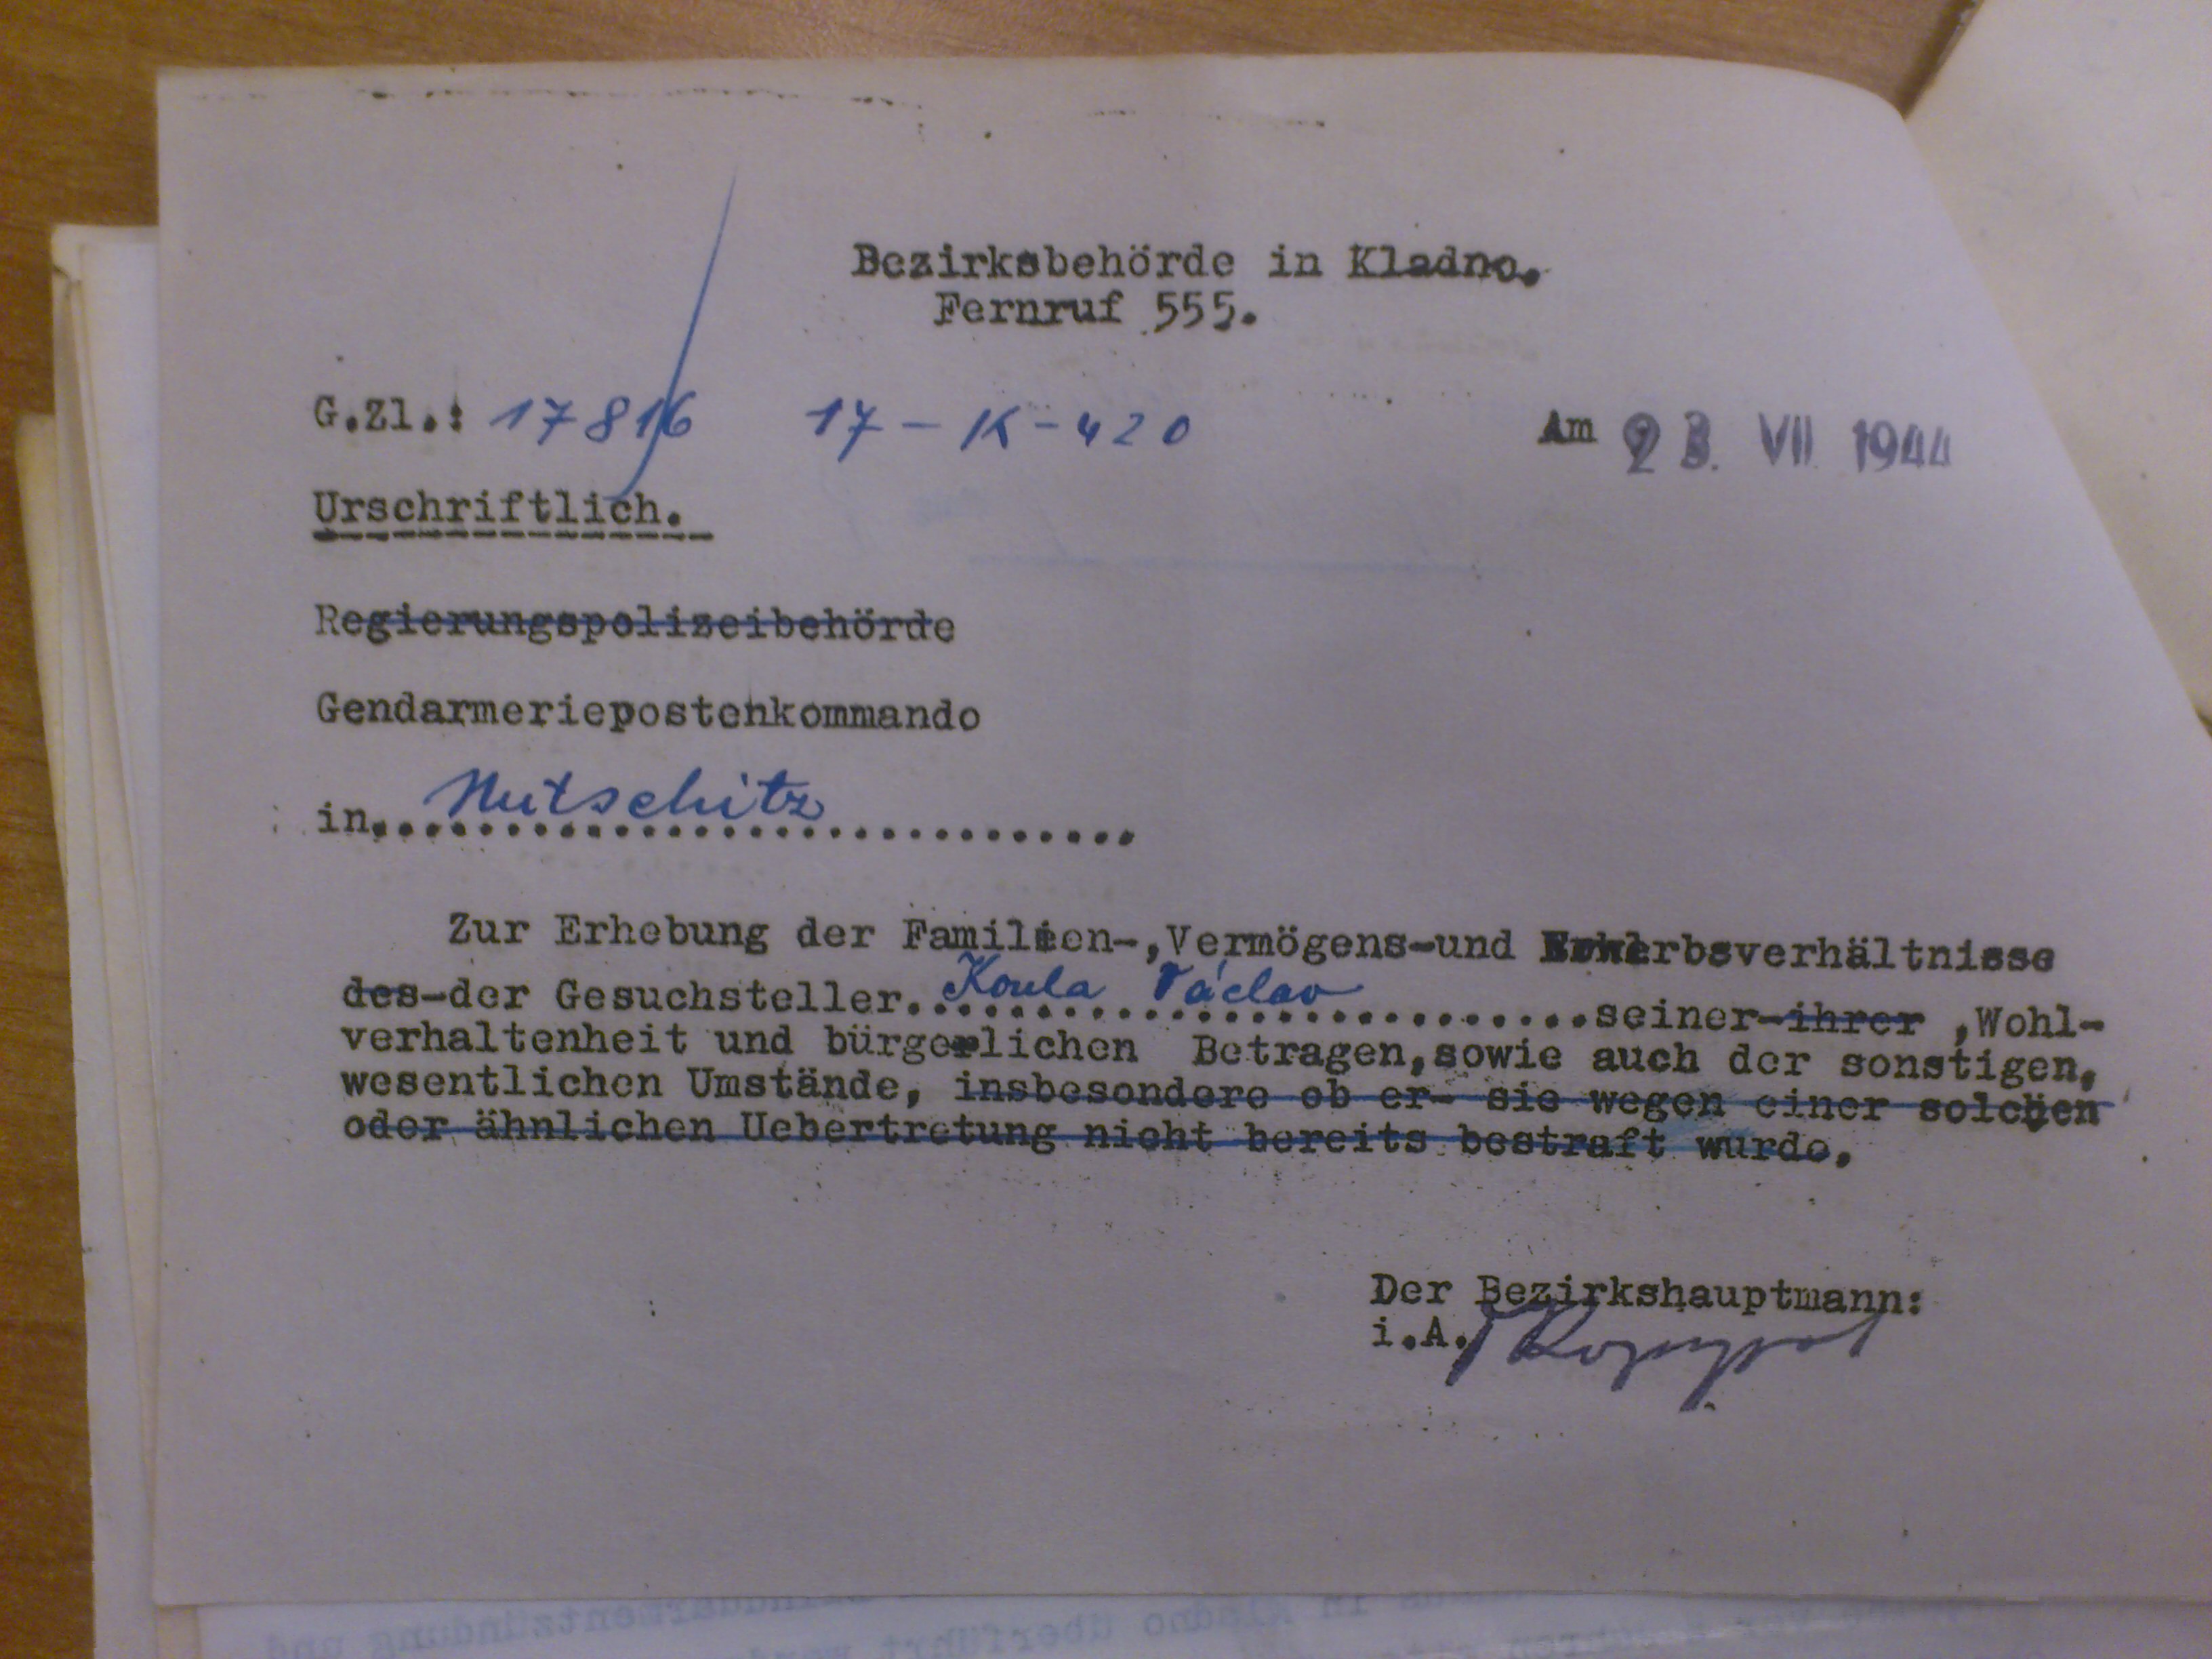 Bezirksbehörde in Kladno.
Fernruf 555.
G.zl.: 17816 17-K-420 Am VII 1944
Urschriftlich.
Regierungspolizeibehörde
Gendarmeriepostenkommando
in Mutschitz
Zur Erhebung der Familien-,Vermögens-und Erwerbsverhältnisse
des-der Gesuchsteller Koula Václav seiner-ihrer ,Wohl-
verhaltenheit und bürgerlichen Betragen,sowie auch der sonstigen,
wesentlichen Umstände, insbesondere ob er- sie wegen einer solchen
oder ähnlichen Uebertretung nicht bereits bestraft wurde,
Der Bezirkshauptmann:
i.A.